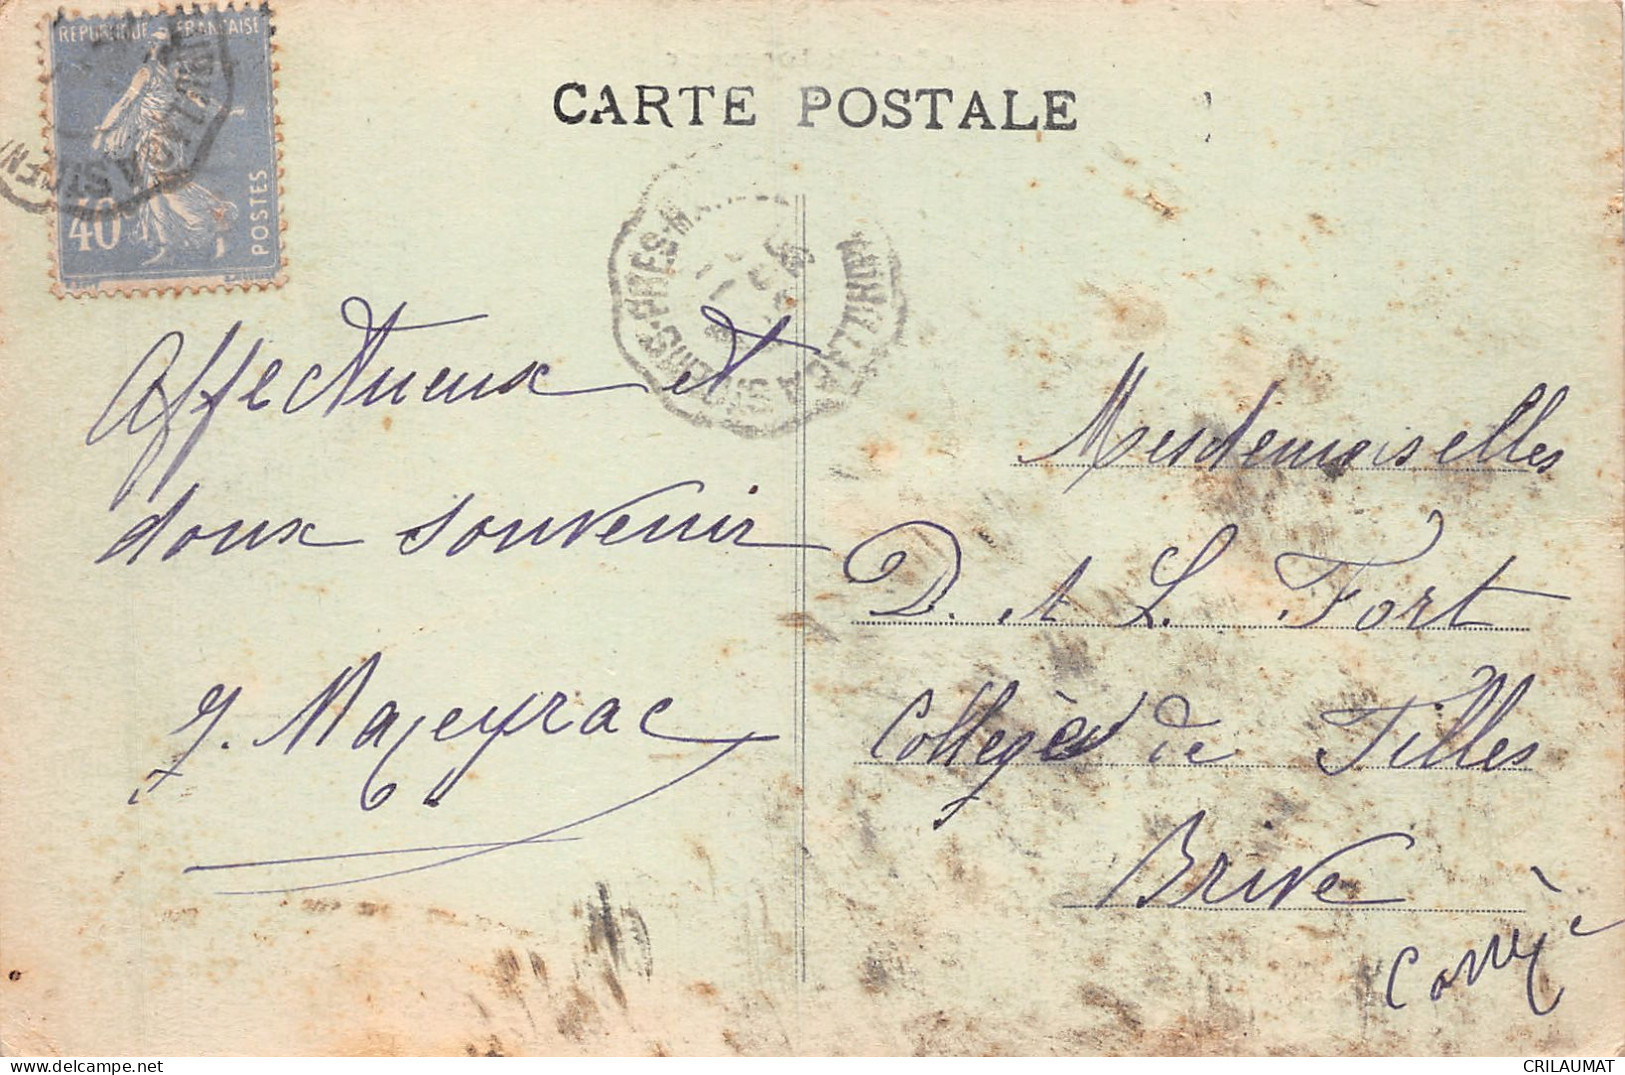 REPUBLIQUE FRANCAISE
40c
POSTES
CARTE POSTALE
Affectueux et
doux souvenir
J. Mazeyrac
Mesdemoiselles
D. et L. Fort
Collège de Filles
Brive
Corrèze
www.delcampe.net
CRILAUMAT